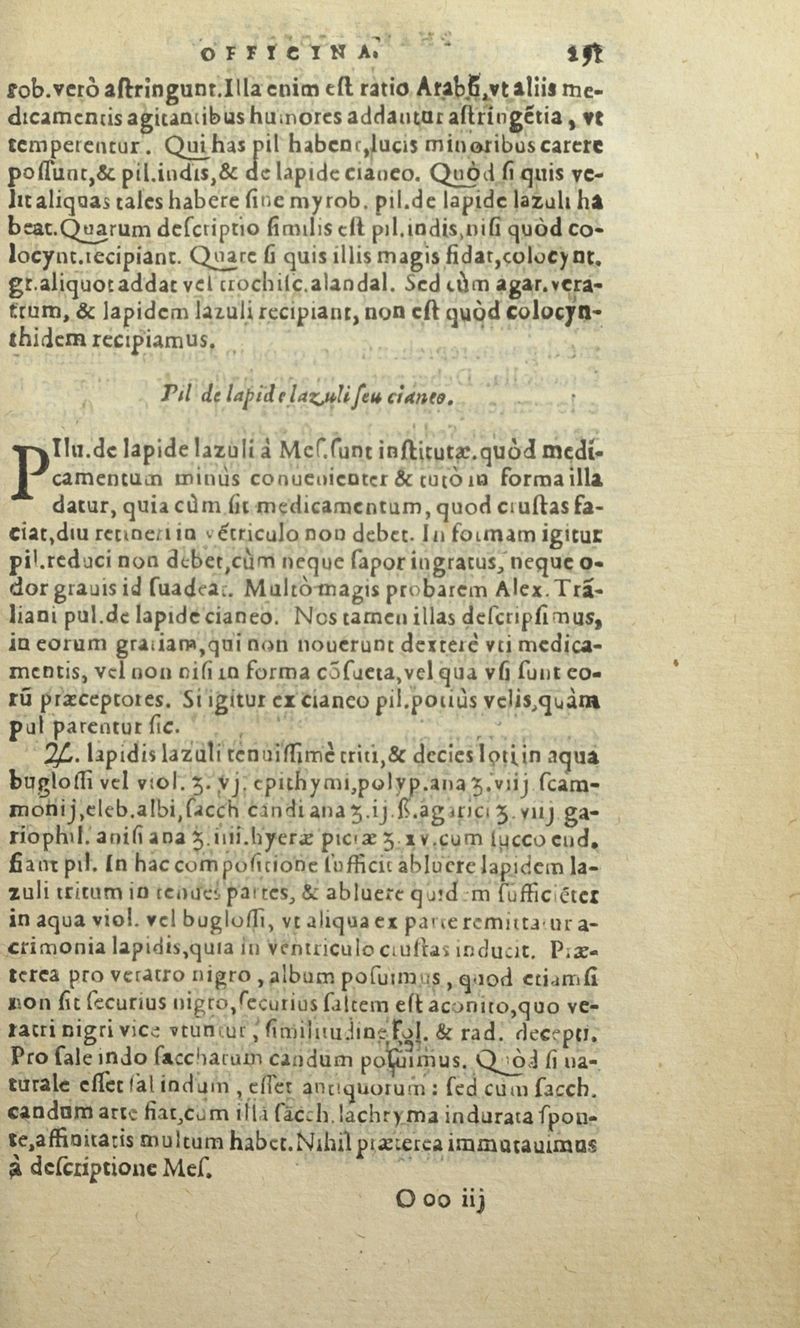 OFFICINA.
rob.verò aſtringunt.Illa enim eſt ratio Arabū,vt aliis me-
dicamentis agitantibus humores addantur aſtringētia, vt
temperentur. Qui has pil habent,lucis minoribus carere
poſſunt,& pil.indis,& de lapide cianeo. Quòd ſi quis ve-
lit aliquas tales habere ſine myrob. pil.de lapide lazuli ha
beat.Quarum deſcriptio ſimilis eſt pil.indis,niſi quòd co-
locynt.recipiant. Quare ſi quis illis magis fidat,colocynt.
gr.aliquot addat vel trochiſc.alandal. Sed cùm agar.vera-
trum, & lapidem lazuli recipiant, non eſt quòd colocyn-
thidem recipiamus.
Pil de lapide lazuli ſeu cianeo.
PIlu.de lapide lazuli à Meſ.ſunt inſtitutæ.quòd medi-
camentum minùs conuenienter & tutò in forma illa
datur, quia cùm ſit medicamentum, quod cruſtas fa-
ciat,diu retineri in vētriculo non debet. In formam igitur
pil.reduci non debet,cùm neque ſapor ingratus, neque o-
dor grauis id ſuadeat. Multò magis probarem Alex.Tra-
liani pul.de lapide cianeo. Nos tamen illas deſcripſimus,
in eorum gratiam,qui non nouerunt dexterè vti medica-
mentis, vel non niſi in forma cōſueta,vel qua vſi ſunt eo-
rū præceptores. Si igitur ex cianeo pil.potiùs velis,quàm
pul parentur ſic.
♃. lapidis lazuli tenuiſſimè triti,& decies loti in aqua
bugloſſi vel viol. ʒ. vj. epithymi,polyp.ana ʒ.viij ſcam-
monij,eleb.albi,ſacch candi ana ʒ.ij.ß.agarici ʒ.viij ga-
riophil. aniſi ana ʒ.iiii.hyeræ picræ ʒ.xv.cum ſucco end.
fiant pil. In hac compoſitione ſufficit abluere lapidem la-
zuli tritum in tenues partes, & abluere quidem ſufficiēter
in aqua viol. vel bugloſſi, vt aliqua ex parte remittatur a-
crimonia lapidis,quia in ventriculo cruſtas inducit. Præ-
terea pro veratro nigro, album poſuimus, quod etiamſi
non ſit ſecurius nigro,ſecurius ſaltem eſt aconito,quo ve-
ratri nigri vice vtuntur, ſimilitudine fol. & rad. decepti.
Pro ſale indo ſaccharum candum poſuimus. Quòd ſi na-
turale eſſet ſal indum, eſſet antiquorum: ſed cùm ſacch.
candum arte fiat,cum illa ſacch.lachryma indurata ſpon-
te,affinitatis multum habet.Nihil præterea immutauimus
à deſcriptione Meſ.
Ooo iij